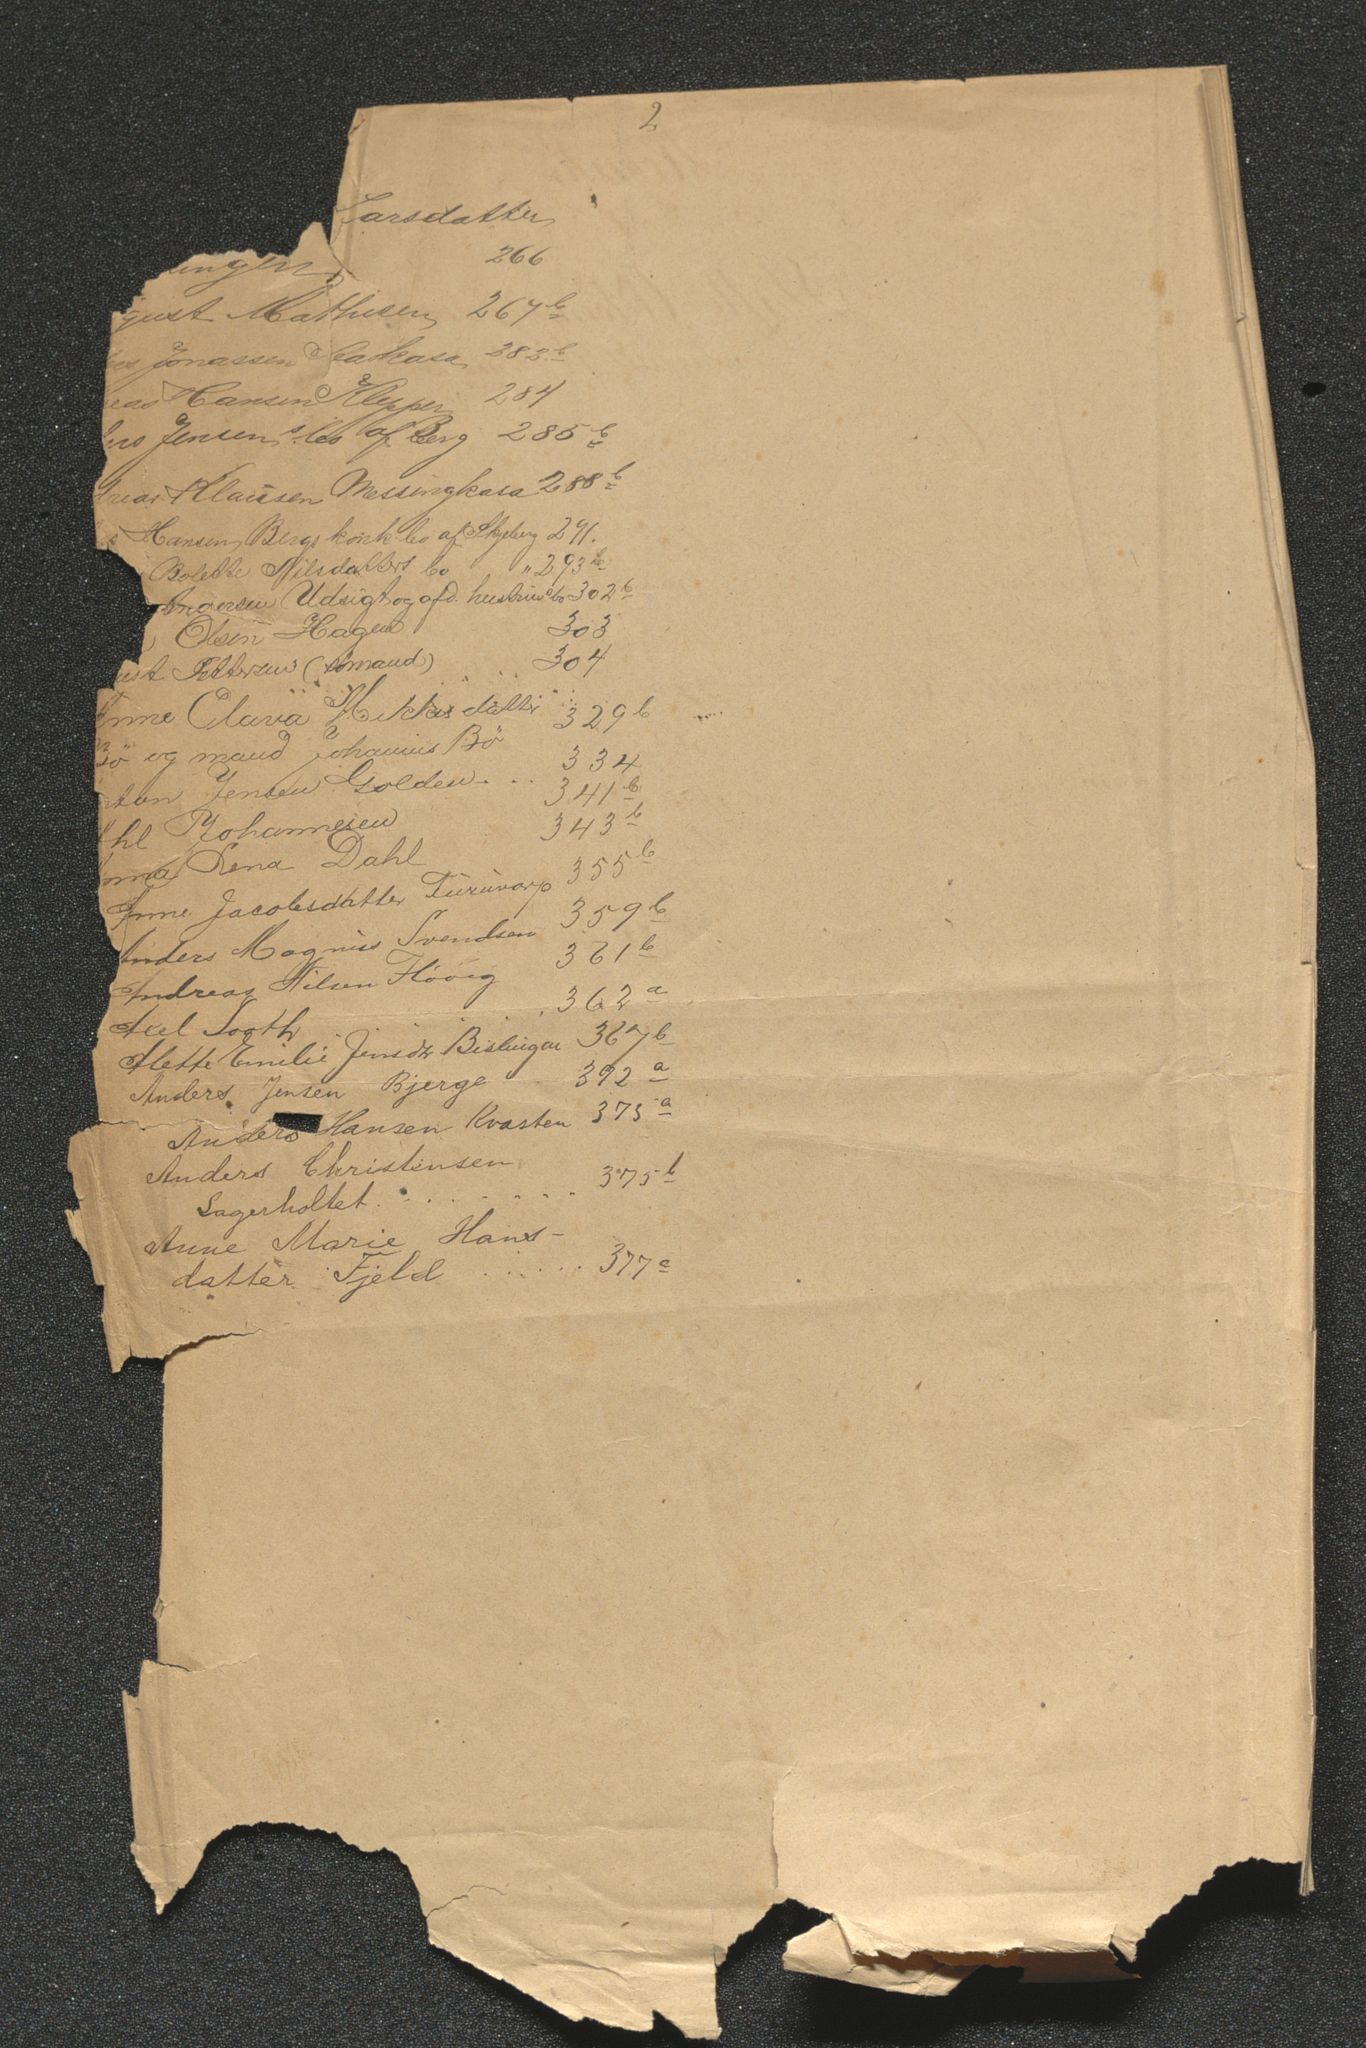 2
Larsdatter
266
Mathisen 267 b
Jonassen 283 b
Hansen Klepper 284
Jensens bo af Berg 285 b
Klausen Messingkasa 288 b
Hansen Bergs konk bo af Skjeberg 291.
Bolette Nilsdatters bo " 293 b
Andersen Udsigt og afd. hustrus bo 302 b
Olsen Hagen 303
Pettersen (sömand) 304
Anne Clara 329 b
Bö og mand Johannes Bö
Jensen Golden . . . 334
Johannesen 341 b
Lena Dahl 343 b
Anne Jacobsdatter Furuvarp 355 b
Anders Magnus Svendsen 359 b
Andreas Nilsen 361 b
Axel Sooth . . . . 362 a
Alette Emilie Jensdtr Bislingen 367 b
Anders Jensen Bjerge 392 a
Anders Hansen Kvasten 373 a
Anders Christensen
Lagerholtet . . . . . . . . 375 b
Anne Marie Hans-
datter Fjeld . . . . . . 377 a